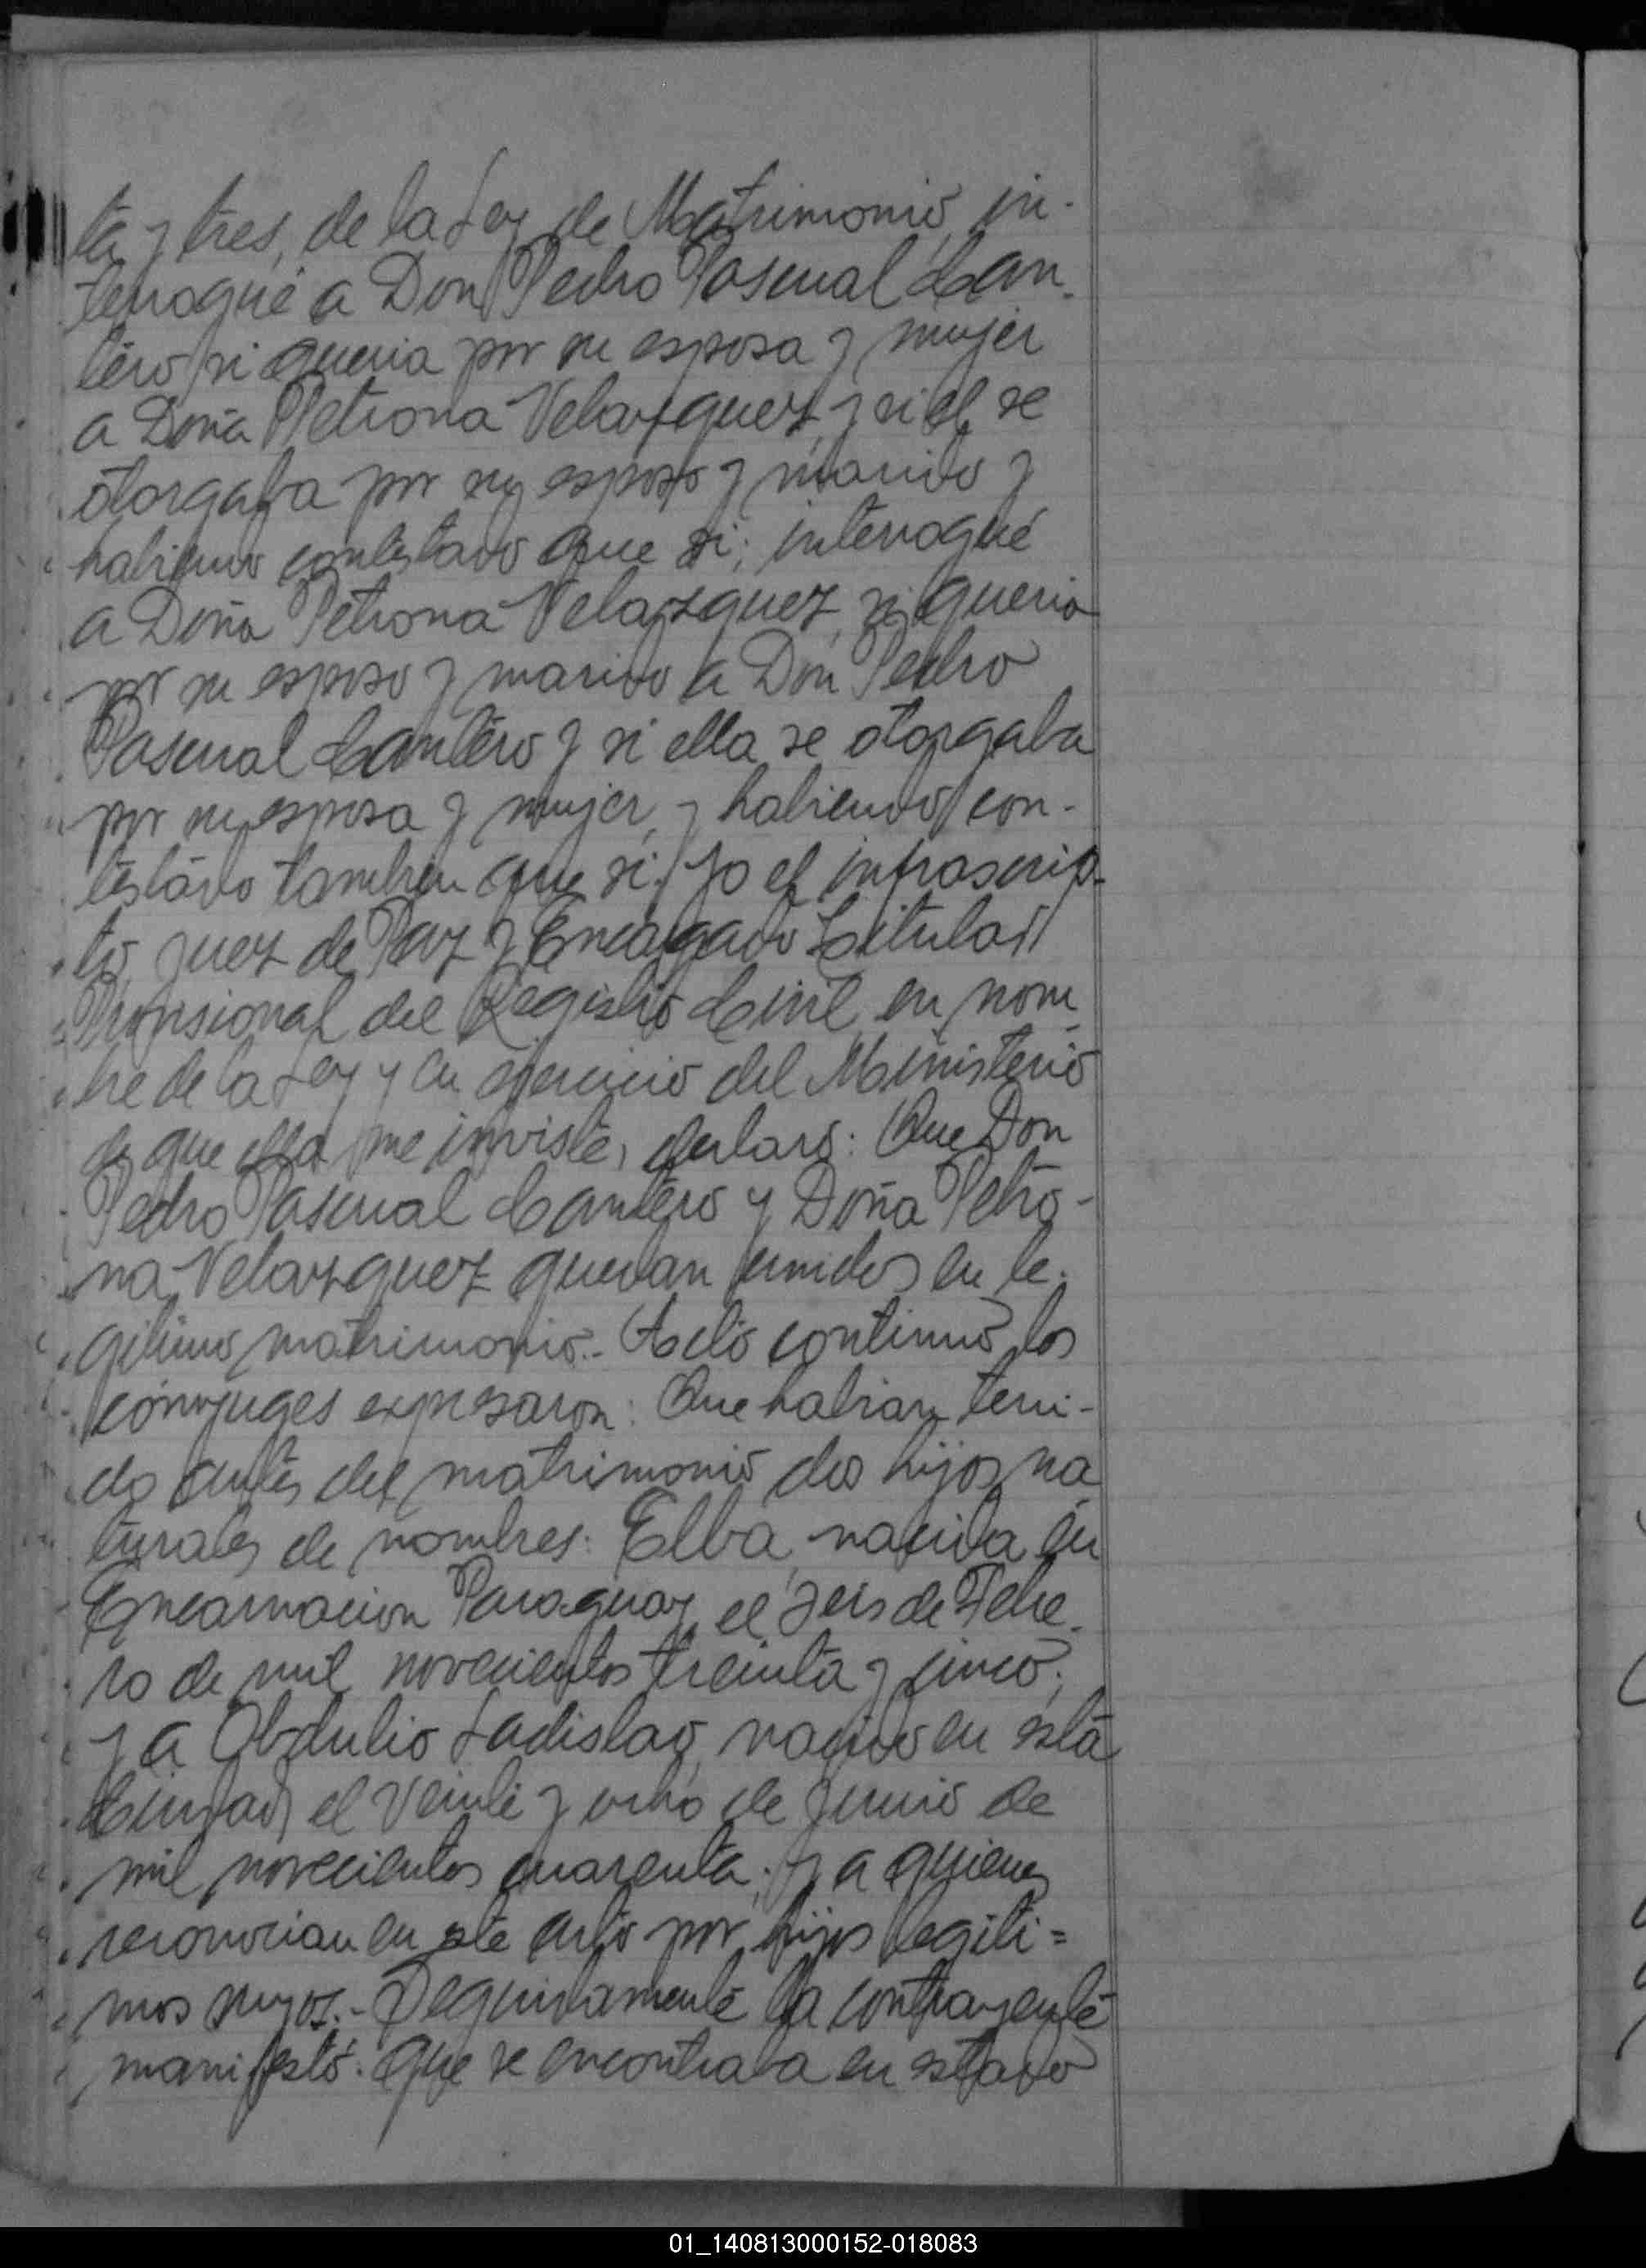 ta y tres, de la Ley de Matrimonio, in-
terrogué a Don Pedro Pascual Can-
tero si queria por su esposa y mujer
a Doña Petrona Velazquez, y si el se
otorgaba por su esposo y marido y
habiendo contestado que si; interrogué
a Doña Petrona Velazquez, si queria
por su esposo y marido a Don Pedro
Pascual Cantero y si ella se otorgaba
por su esposa y mujer, y habiendo con-
testado tambien que si. Yo el infrascrip-
to, Juez de Paz y Encargado Titular
Provisional del Registro Civil, en nom-
bre de la Ley y en ejercicio del Ministerio
de que ella me inviste, declaro: Que Don
Pedro Pascual Cantero y Doña Petro-
na Velazquez quedan unidos en le-
gitimo matrimonio.- Acto continuo los
cónyuges expresaron: Que habian teni-
do antes del matrimonio dos hijos na
turales de nombres: Elba, nacida en
Encarnacion Paraguay, el seis de Febre-
ro de mil novecientos treinta y cinco;
y a Obdulio Ladislao, nacido en esta
Ciudad, el veinte y ocho de Junio de
mil novecientos cuarenta; y a quienes
reconocian en este acto por hijos legiti=
mos suyos.- Seguidamente la contrayente
manifestó: que se encontraba en estado
01_140813000152-018083